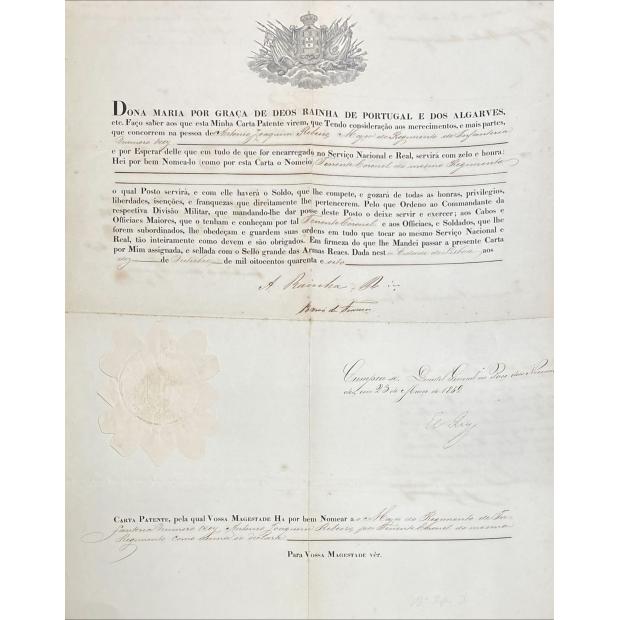 DONA MARIA POR GRAÇA DE DEOS RAINHA DE PORTUGAL E DOS ALGARVES,
etc. Faço saber aos que esta Minha Carta Patente virem, que Tendo consideração aos merecimentos, e mais partes,
que concorrem na pessoa de Antonio Joaquim Ribeiro, Major do Regimento de Infanteria
numero dez,
e por Esperar delle que em tudo de que for encarregado no Serviço Nacional e Real, servirá com zelo e honra:
Hei por bem Nomea-lo (como por esta Carta o Nomeio) Tenente Coronel do mesmo Regimento
o qual Posto servirá, e com elle haverá o Soldo, que lhe compete, e gozará de todas as honras, privilegios,
liberdades, isenções, e franquezas que direitamente lhe pertencerem. Pelo que Ordeno ao Commandante da
respectiva Divisão Militar, que mandando-lhe dar posse deste Posto o deixe servir e exercer; aos Cabos e
Officiaes Maiores, que o tenham e conheçam por tal Tenente Coronel e aos Officiaes, e Soldados, que lhe
forem subordinados, lhe obedeçam e guardem suas ordens em tudo que tocar ao mesmo Serviço Nacional e
Real, tão inteiramente como devem e são obrigados. Em firmeza do que lhe Mandei passar a presente Carta
por Mim assignada, e sellada com o Sello grande das Armas Reaes. Dada nest a Cidade de Lisboa aos
dez de Outubro de mil oitocentos quarenta e oito
A Rainha R
Cumpra-se. Quartel General no Paço das Necessida
des, em 23 de Março de 1850
El Rey
CARTA PATENTE, pela qual VOSSA MAGESTADE HA por bem Nomear a o Major do Regimento de In-
fanteria numero dez, Antonio Joaquim Ribeiro, por Tenente Coronel do mesmo
Regimento como acima se declara
Para VOSSA MAGESTADE vêr.